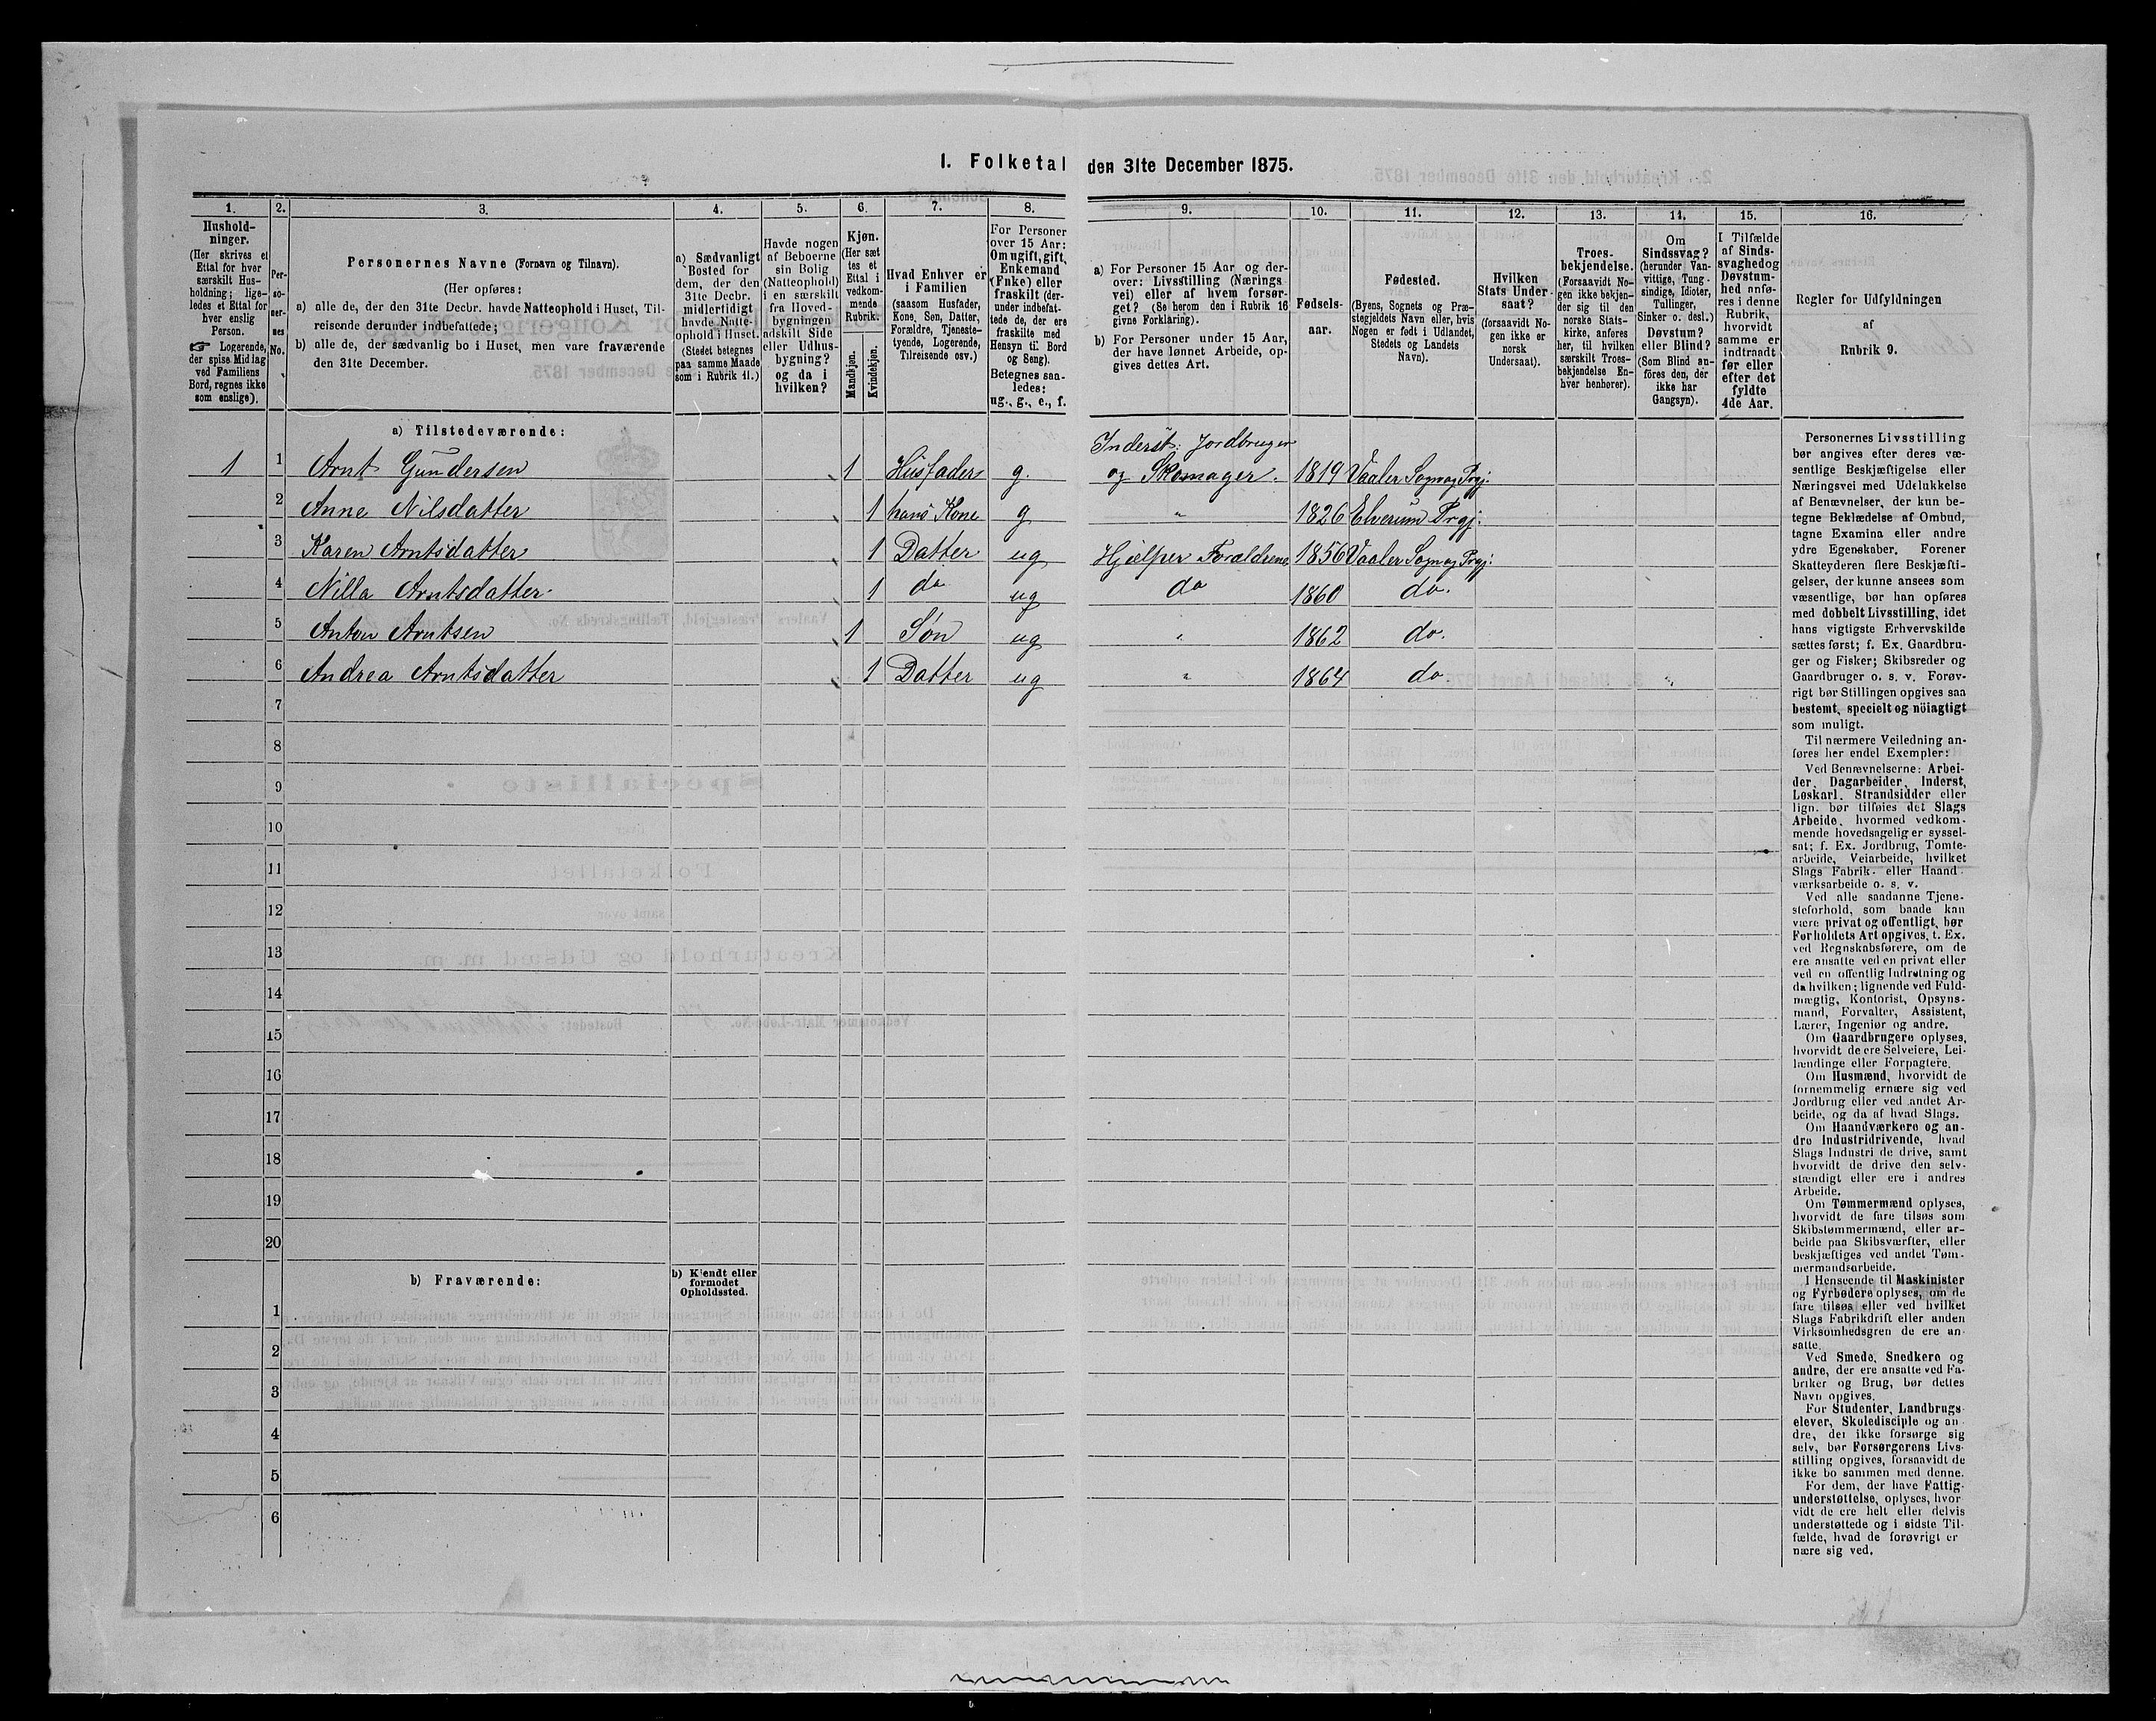 1. Folketal den 31te December 1875.
1.
Hushold-
ninger.
(Her skrives et
Ettal for hver
særskilt Hus-
holdning; lige-
ledes et Ettal for
hver enslig
Person.
☞ Logerende,
der spise Middag
ved Familiens
Bord, regnes ikke
som enslige).
2.
Per-
so-
ner-
nes
No.
3.
Personernes Navne (Fornavn og Tilnavn).
(Her opføres:
a) alle de, der den 31te Decbr. havde Natteophold i Huset, Til-
reisende derunder indbefattede;
b) alle de, der sædvanlig bo i Huset, men vare fraværende
den 31te December.
4.
a) Sædvanligt
Bosted for
dem, der den
31te Decbr.
midlertidigt
havde Natte-
ophold i Huset.
(Stedet betegnes
paa samme Maade
som i Rubrik 11.)
5.
Havde nogen
af Beboerne
sin Bolig
(Natteophold)
i en særskilt
fra Hoved-
bygningen
adskilt Side
eller Udhus-
bygning?
og da i
hvilken?
6.
Kjøn.
(Her sæt
tes et
Ettal i
vedkom-
mende
Rubrik.
Mandkjøn.
Kvindekjøn.
7.
Hvad Enhver er
i Familien
(saasom Husfader,
Kone, Søn, Datter,
Forældre, Tjeneste-
tyende, Logerende,
Tilreisende osv.)
8.
For Personer
over 15 Aar:
Om ugift, gift,
Enkemand
(Enke) eller
fraskilt (der-
under indbefat-
tede de, der ere
fraskilte med
Hensyn til Bord
og Seng).
Betegnes saa-
ledes:
ug., g., e., f.
9.
a) For Personer 15 Aar og der-
over: Livsstilling (Nærings-
vei) eller af hvem forsør-
get? (Se herom den i Rubrik 16
givne Forklaring).
b) For Personer under 15 Aar,
der have lønnet Arbeide, op-
gives dettes Art.
10.
Fødsels-
aar.
11.
Fødested.
(Byens, Sognets og Præ-
stegjeldets Navn eller, hvis
Nogen er født i Udlandet,
Stedets og Landets
Navn).
12.
Hvilken
Stats Under-
saat?
(forsaavidt No-
gen ikke er
norsk
Undersaat).
13.
Troes-
bekjendelse.
(Forsaavidt No-
gen ikke bekjen-
der sig til den
norske Stats-
kirke, anføres
her, til hvilken
særskilt Troes-
bekjendelse En-
hver henhører).
14.
Om
Sindssvag?
(herunder Van-
vittige, Tung-
sindige, Idioter,
Tullinger,
Sinker o. desl.)
Døvstum?
eller Blind?
(Som Blind an-
føres den, der
ikke har
Gangsyn).
15.
I Tilfælde
af Sinds-
svaghed og
Døvstum-
hed anfø-
res i denne
Rubrik,
hvorvidt
samme er
indtraadt
før eller
efter det
fyldte
4de Aar.
16.
Regler for Udfyldningen
af
Rubrik 9.
a) Tilstedeværende:
Inderst. Jordbruger
1 1 Arnt Gundersen 1 Husfader g. og Skomager. 1819 Vaaler Sogn og Prgj.
2 Anne Nilsdatter 1 hans Kone g " 1826 Elverum Prgj.
3 Karen Arntsdatter 1 Datter ug Hjælper Forældrene 1856 Vaaler Sogn og Prgj.
4 Nilla Arntsdatter 1 do ug do 1860 do.
5 Anton Arntsen 1 Søn ug " 1862 do.
6 Andrea Arntsdatter 1 Datter ug " 1864 do
7
8
9
10
11
12
13
14
15
16
17
18
19
20
b) Fraværende:
b) Kjendt eller
formodet
Opholdssted.
1
2
3
4
5
6
Personernes Livsstilling
bør angives efter deres væ-
sentlige Beskjæftigelse eller
Næringsvei med Udelukkelse
af Benævnelser, der kun be-
tegne Beklædelse af Ombud,
tagne Examina eller andre
ydre Egenskaber. Forener
Skatteyderen flere Beskjæfti-
gelser, der kunne ansees som
væsentlige, bør han opføres
med dobbelt Livsstilling, idet
hans vigtigste Erhvervskilde
sættes først; f. Ex. Gaardbru-
ger og Fisker; Skibsreder og
Gaardbruger o. s. v. Forøv-
rigt bør Stillingen opgives saa
bestemt, specielt og nöiagtigt
som muligt.
Til nærmere Veiledning an-
føres her endel Exempler:
Ved Benævnelserne: Arbei-
der, Dagarbeider, Inderst,
Løskarl, Strandsidder eller
lign. bør tilføies det Slags
Arbeide, hvormed vedkom-
mende hovedsagelig er syssel-
sat; f. Ex. Jordbrug, Tomte-
arbeide, Veiarbeide, hvilket
Slags Fabrik- eller Haand-
værksarbeide o. s. v.
Ved alle saadanne Tjene-
steforhold, som baade kan
være privat og offentligt, bør
Forholdets Art opgives, t. Ex.
ved Regnskabsførere, om de
ere ansatte ved en privat eller
ved en offentlig Indretning og
da hvilken; lignende ved Fuld-
mægtig, Kontorist, Opsyns-
mand, Forvalter, Assistent,
Lærer, Ingeniør og andre.
Om Gaardbrugere oplyses,
hvorvidt de ere Selveiere, Lei-
lændinge eller Forpagtere.
Om Husmænd, hvorvidt de
fornemmelig ernære sig ved
Jordbrug eller ved andet Ar-
beide, og da af hvad Slags.
Om Haandværkere og an-
dre Industridrivende, hvad
Slags Industri de drive, samt
hvorvidt de drive den selv-
stændigt eller ere i andres
Arbeide.
Om Tømmermænd oplyses,
hvorvidt de fare tilsøs som
Skibstømmermænd, eller ar-
beide paa Skibsværfter, eller
beskjæftiges ved andet Tøm-
mermandsarbeide.
I Henseende til Maskinister
og Fyrbødere oplyses, om de
fare tilsøs eller ved hvilket
Slags Fabrikdrift eller anden
Virksomhedsgren de ere an-
satte.
Ved Smede, Snedkere og
andre, der ere ansatte ved Fa-
briker og Brug, bør dettes
Navn opgives.
For Studenter, Landbrugs-
elever, Skoledisciple og an-
dre, der ikke forsørge sig
selv, bør Forsørgerens Livs-
stilling opgives, forsaavidt de
ikke bo sammen med denne.
For dem, der have Fattig-
understøttelse, oplyses, hvor-
vidt de ere helt eller delvis
understøttede og i sidste Til-
fælde, hvad de forøvrigt er-
nære sig ved.